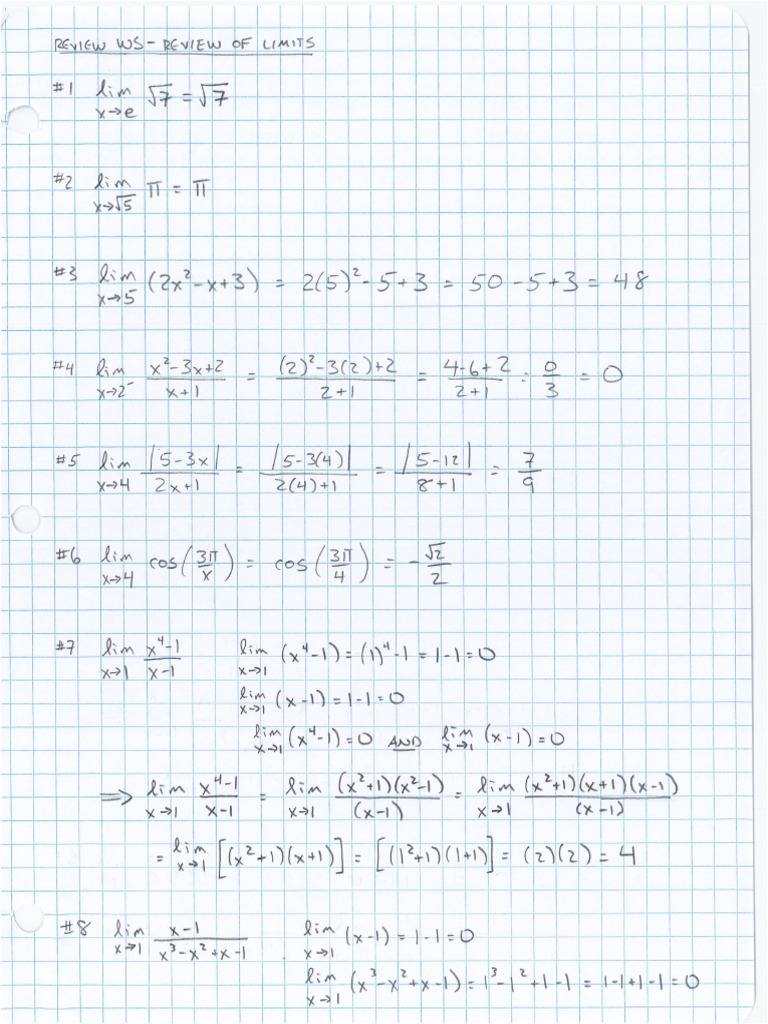 REVIEW WS - REVIEW OF LIMITS
#1 lim x→e √7 = √7
#2 lim x→√5 π = π
#3 lim x→5 (2x² - x + 3) = 2(5)² - 5 + 3 = 50 - 5 + 3 = 48
#4 lim x→2⁻ (x² - 3x + 2)/(x + 1) = ((2)² - 3(2) + 2)/(2 + 1) = (4 - 6 + 2)/(2 + 1) = 0/3 = 0
#5 lim x→4 |5 - 3x|/(2x + 1) = |5 - 3(4)|/(2(4) + 1) = |5 - 12|/(8 + 1) = 7/9
#6 lim x→4 cos(3π/x) = cos(3π/4) = -√2/2
#7 lim x→1 (x⁴ - 1)/(x - 1) lim x→1 (x⁴ - 1) = (1)⁴ - 1 = 1 - 1 = 0
lim x→1 (x - 1) = 1 - 1 = 0
lim x→1 (x⁴ - 1) = 0 AND lim x→1 (x - 1) = 0
⇒ lim x→1 (x⁴ - 1)/(x - 1) = lim x→1 (x² + 1)(x² - 1)/(x - 1) = lim x→1 (x² + 1)(x + 1)(x - 1)/(x - 1)
= lim x→1 [(x² + 1)(x + 1)] = [(1² + 1)(1 + 1)] = (2)(2) = 4
#8 lim x→1 (x - 1)/(x³ - x² + x - 1) lim x→1 (x - 1) = 1 - 1 = 0
lim x→1 (x³ - x² + x - 1) = 1³ - 1² + 1 - 1 = 1 - 1 + 1 - 1 = 0